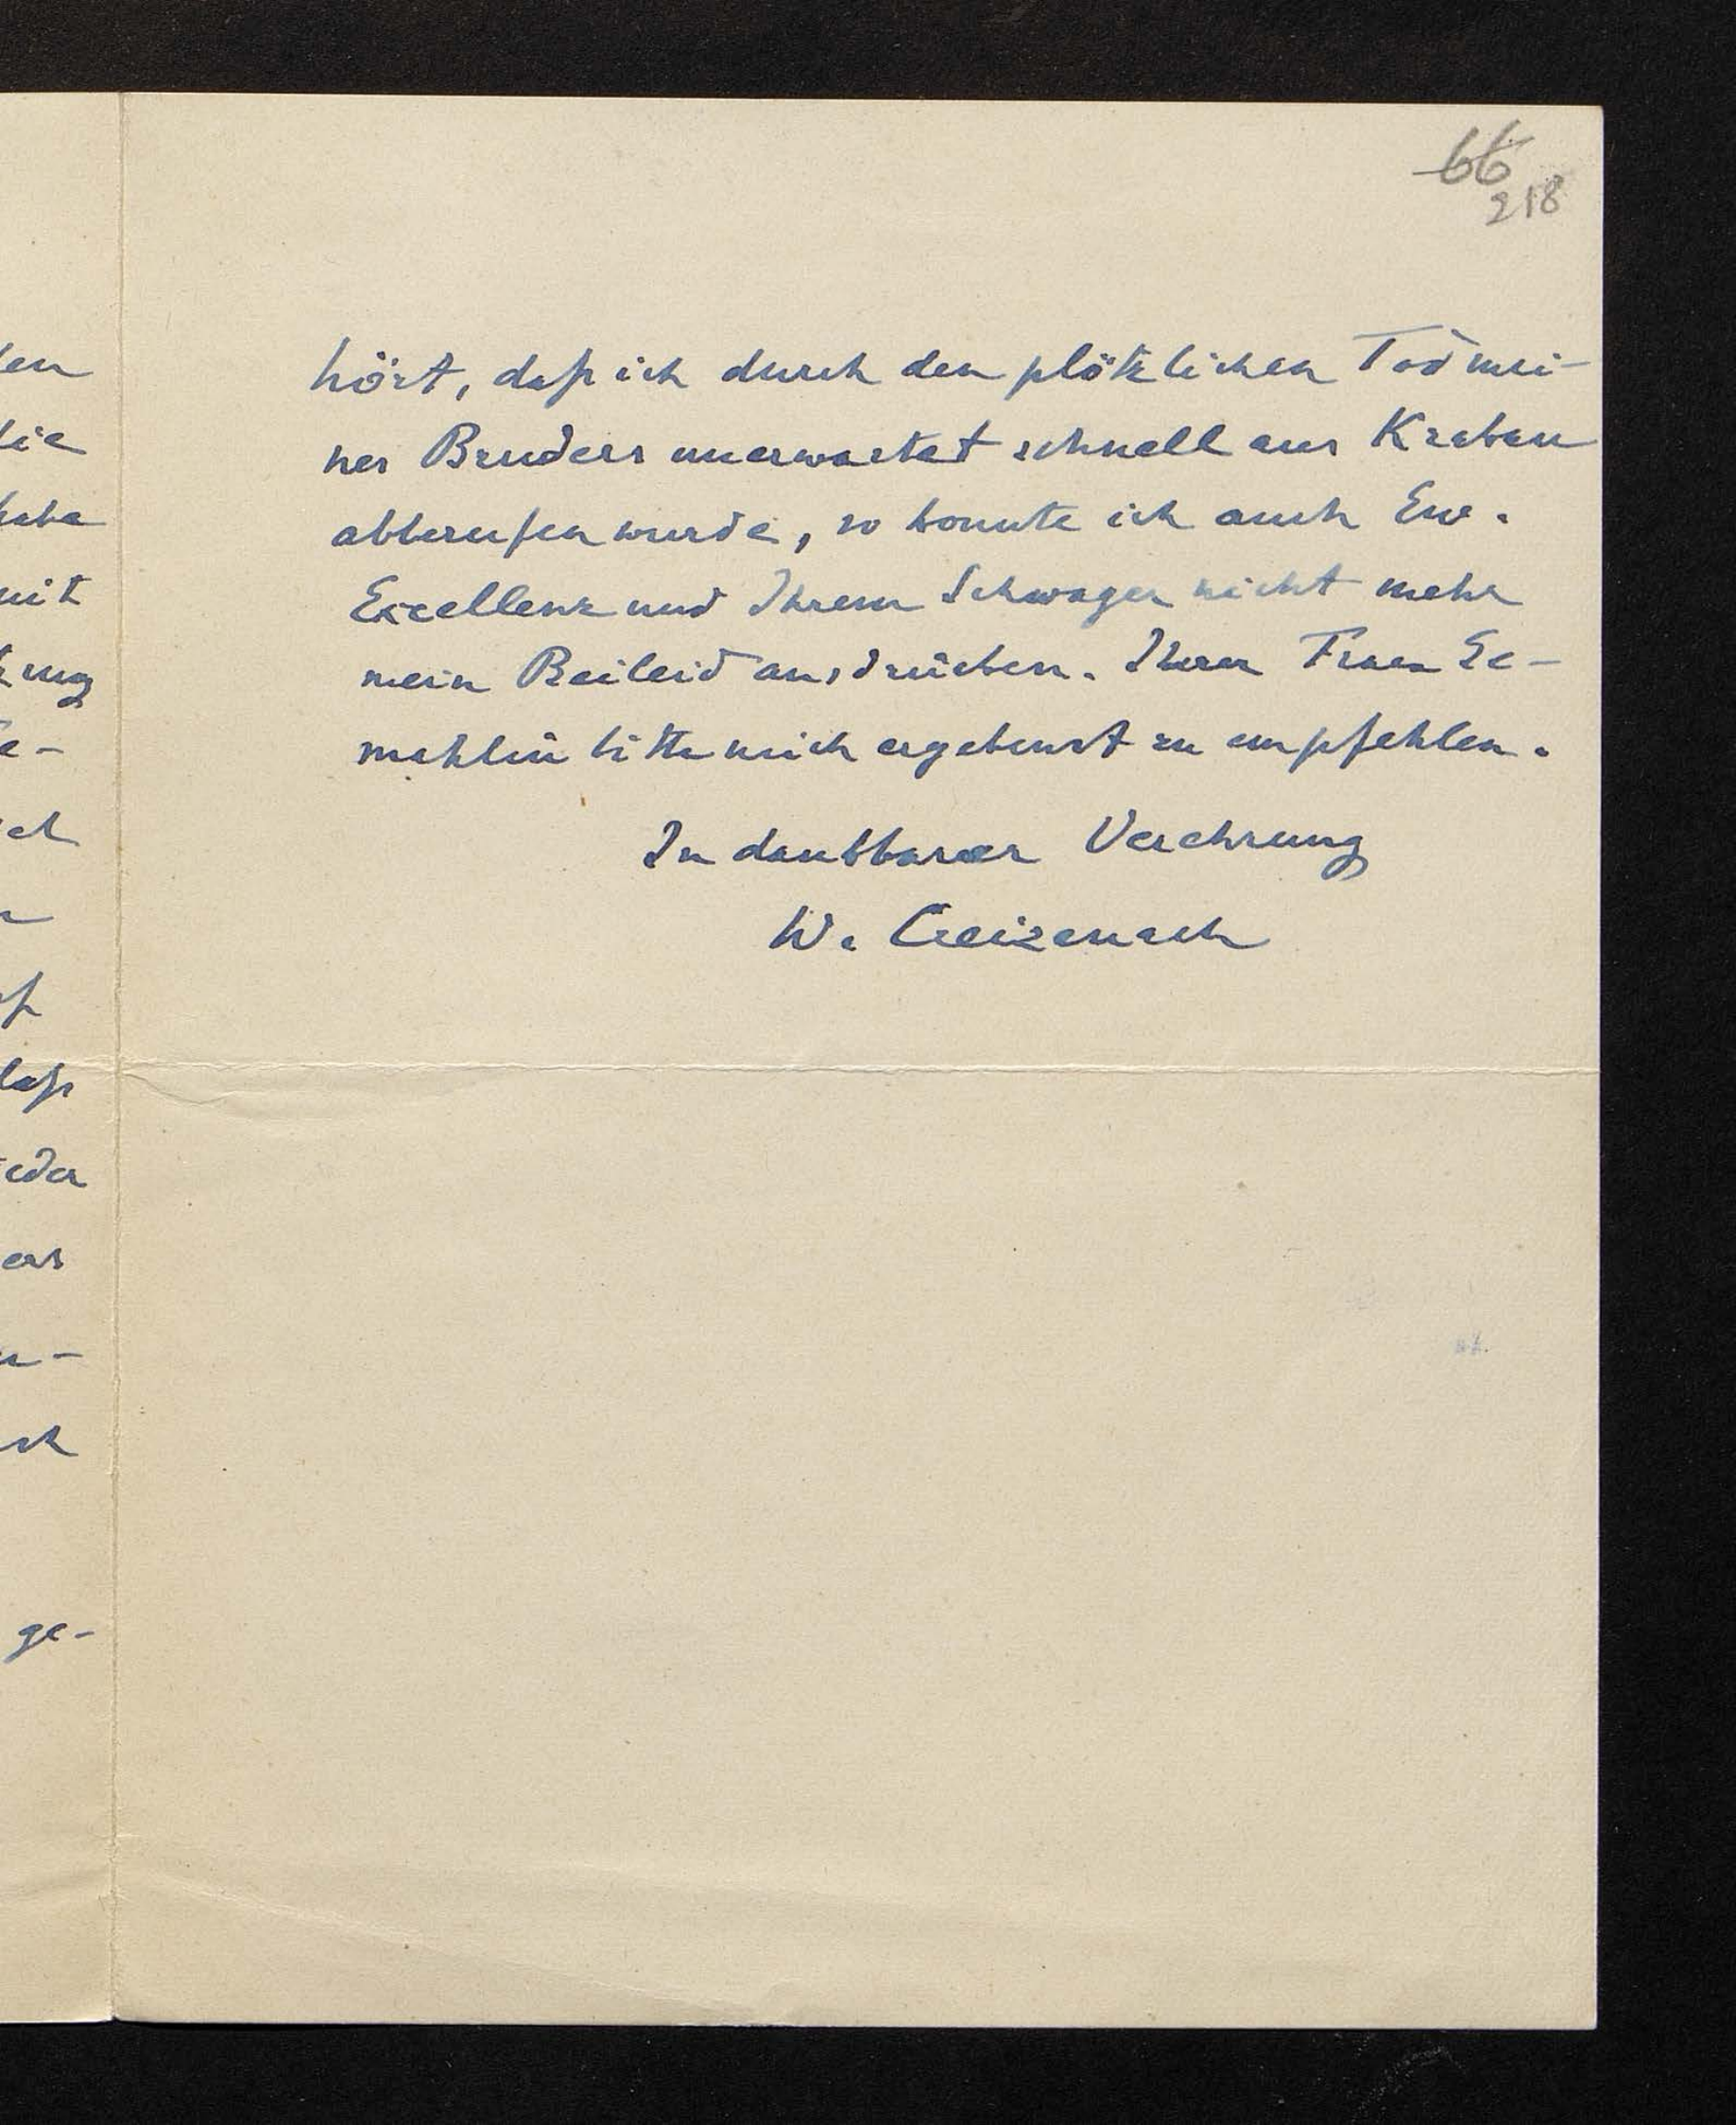 66
218
hört, daß ich durch den plötzlichen Tod mei-
nes Bruders unerwartet schnell aus Krakau
abberufen wurde, so konnte ich auch Ew.
Excellenz und Ihrem Schwager nicht mehr
mein Beileid ausdrücken. Ihrer Frau Ge-
mahlin bitte mich ergebenst zu empfehlen.
In dankbarer Verehrung
W. Creizenach
en
die
habe
mit
ung
e-
f
daß
eder
as
ge-